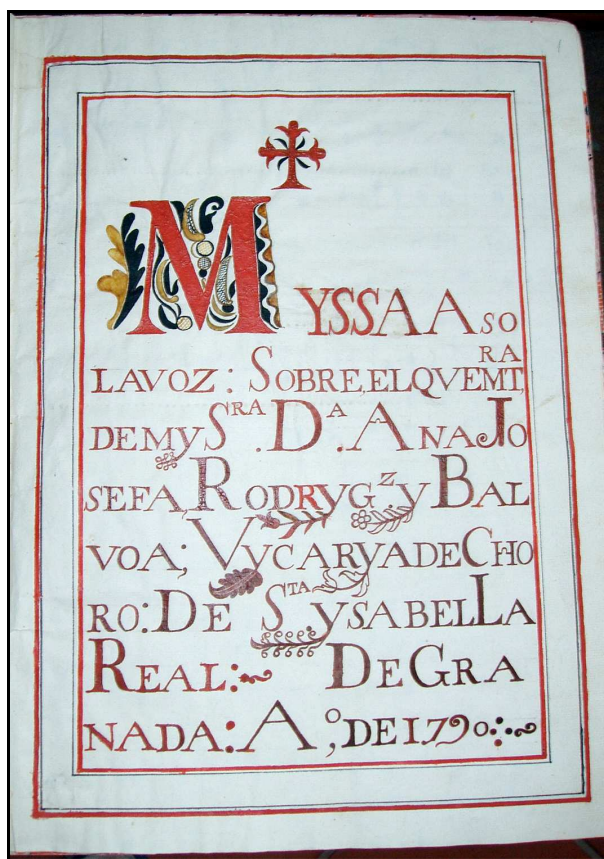 MYSSA A SO
LA VOZ: SOBRE, EL QVEMT,RA
DE MY SRA. Da. ANA JO
SEFA, RODRYGz. Y BAL
VOA; VYCARYA DE CHO
RO: DE STA. YSABEL LA
REAL: DE GRA
NADA: Ao, DE 1.790: